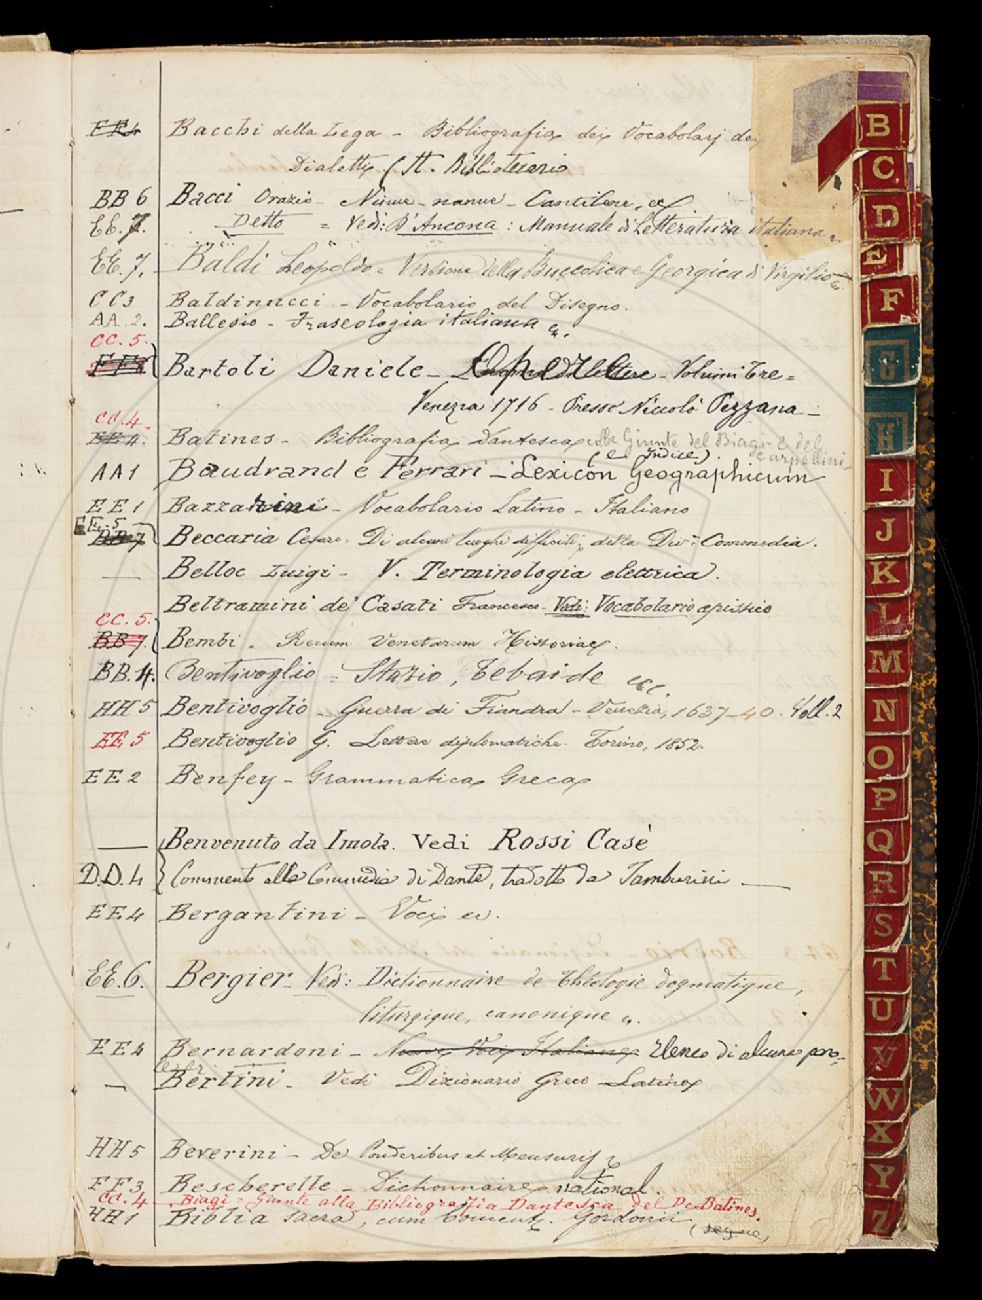 EE4 Bacchi della Lega - Bibliografia dei Vocabolarj dei
Dialetti (It. Bibliotecario
BB 6 Bacci Orazio - Ninne-nanne - Cantilene, ec
EE. 7. Detto = Vedi: D'Ancona: Manuale di Letteratura italiana
EE. 7. Baldi Leopoldo = Versione della Buccolica e Georgica di Virgilio
CC3 Baldinucci - Vocabolario del Disegno.
AA 2. Ballesio - Fraseologia italiana
CC. 5.
Bartoli Daniele - Opere - Volumi Tre =
Venezia 1716 - Presso Niccolò Pezzana -
CC. 4.
EE 4. Batines - Bibliografia Dantesca colle Giunte del Biagi e del
(e Indice). Carpellini
AA1 Baudrand e Ferrari - Lexicon Geographicum
EE 1 Bazzarini - Vocabolario Latino - Italiano
EE. 5
BB 7 Beccaria Cesare. Di alcuni luoghi difficili della Div.ª Commedia.
— Belloc Luigi - V. Terminologia elettrica.
Beltramini de' Casati Francesco - Vedi: Vocabolario apistico
CC. 5.
BB 7. Bembi. Rerum Venetarum Historiae
BB. 4. Bentivoglio = Stazio, Tebaide ecc.
HH 5 Bentivoglio - Guerra di Fiandra - Venezia, 1637-40. Voll. 2
EE 5 Bentivoglio G. Lettere diplomatiche. Torino, 1852.
EE 2 Benfey - Grammatica Greca
— Benvenuto da Imola. Vedi Rossi Casè
D.D. 4 Commento alla Commedia di Dante, tradotto da Tamburini —
EE 4 Bergantini - Voci ec.
EE. 6. Bergier - Vedi: Dictionnaire de Théologie dogmatique,
liturgique, canonique
EE 4 Bernardoni - Nuove Voci Italiane Elenco di alcune paro-
— Bertini - Vedi Dizionario Greco - Latino
HH5 Beverini - De Ponderibus et Mensuris
FF3 Bescherelle - Dictionnaire national.
CC. 4 - Biagi = Giunte alla Bibliografia Dantesca del De Batines.
HH1 Biblia sacra, cum Coment. Gordonii
(segue)
B
C
D
E
F
G
H
I
J
K
L
M
N
O
P
Q
R
S
T
U
V
W
X
Y
Z